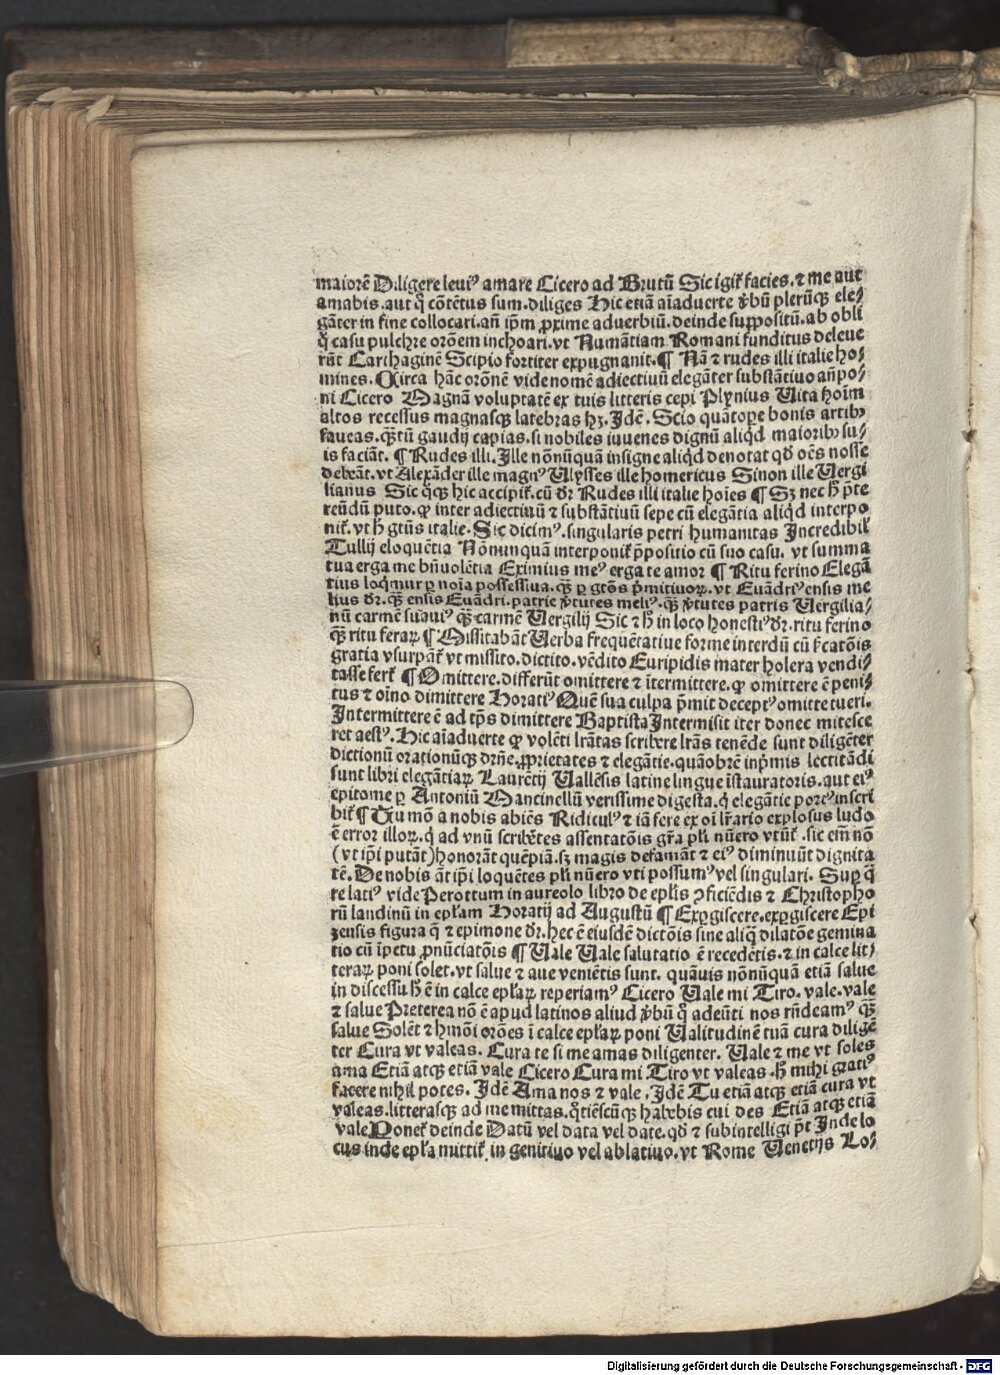 maiorē Diligere leuiꝰ amare Cicero ad Brutū Sic igit̉ facies. ⁊ me aut
amabis. aut q̇ cōtētus sum. diliges Hic etiā aīaduerte v̉bū plerūqꝫ ele⸗
gāter in fine collocari. añ ip̄m ꝓxime aduerbiū. deinde suppositū. ab obli
q̊ casu pulchre orōem inchoari. vt Numātiam Romani funditus deleue
rūt Carthaginē Scipio fortiter expugnanit. ¶ Nā ⁊ rudes illi italie ho⸗
mines. Circa hāc orōnē vide nomē adiectiuū elegāter substātiuo añpo⸗
ni Cicero Magnā voluptatē ex tuis litteris cepi Plynius Uita hoīm
altos recessus magnasqꝫ latebras hꝫ. Idē. Scio quātope bonis artibꝫ
faueas. qꝫtū gaudij capias. si nobiles iuuenes dignū aliqd maioribꝫ su⸗
is faciāt. ¶ Rudes illi. Ille nōnūquā insigne aliqd denotat qd̄ oēs nosse
debeāt. vt Alexāder ille magnꝰ Ulysses ille homericus Sinon ille Uergi
lianus Sic qꝫ hic accipit̉. cū dr̄ Rudes illi italie hoīes ¶ Sꝫ nec h̄ p̄te
reūdū puto. ꝙ inter adiectiuū ⁊ substātiuū sepe cū elegātia aliqd interpo
nit̉. vt h̄ gtūs italie. Sic dicimꝰ. singularis petri humanitas Incredibil̉
Tullij eloquētia Nōnunquā interponit̉ p̄positio cū suo casu. vt summa
tua erga me bn̄uolētia Eximius meꝰ erga te amor ¶ Ritu ferino Elegā
tius loq̇mur ꝑ noīa possessiua. qꝫ ꝑ gtōs p̄mitiuoꝝ. vt Euādriꝰ ensis me
lius dr̄. qꝫ ensis Euādri. patrie v̉tutes meliꝰ. qꝫ v̉tutes patris Uergilia⸗
nū carmē suauiꝰ qꝫ carmē Uergilij Sic ⁊ h̄ in loco honestiꝰ dr̄. ritu ferino
qꝫ ritu feraꝝ ¶ Missitabāt Uerba frequētatiue forme interdū cū s̉catōnis
gratia vsurpāt̉ vt missito. dictito. vēdito Euripidis mater holera vendi⸗
tasse fert̉ ¶ Omittere. differūt omittere ⁊ ītermittere. ꝙ omittere ē peni⸗
tus ⁊ oīno dimittere Horatiꝰ Quē sua culpa p̄mit deceptꝰ omitte tueri.
Intermittere ē ad tp̄s dimittere Baptista Intermisit iter donec mitesce
ret aestꝰ. Hic aīaduerte ꝙ volēti lr̄atas scribere lr̄as tenēde sunt diligēter
dictionū orationūqꝫ drn̄e. ꝓprietates ⁊ elegātie. quāobrē inp̄mis lectitādi
sunt libri elegātiaꝝ Laurētij Uallēsis latine lingue īstauratoris. aut eiꝰ
epitome ꝑ Antoniū Mancinellū verissime digesta. q̇ elegātie portꝰ inscri
bit̉ ¶ Tu mō a nobis abiēs Ridiculꝰ ⁊ iā fere ex oī lr̄ario explosus ludo
ē error illoꝝ. q̇ ad vnū scribētes assentatōis gr̄a pl̄i nūero vtūt̉. sic em̄ nō
(vt ip̄i putāt) honorāt quēpiā. sꝫ magis defamāt ⁊ eiꝰ diminuūt dignita
tē. De nobis āt ip̄i loquētes pl̄i nūero vti possumꝰ vel singulari. Suꝑ q̄
re latiꝰ vide Perottum in aureolo libro de epl̄is ꝯficiēdis ⁊ Christopho
rū landinū in epl̄am Horatij ad Augustū ¶ Exꝑgiscere. exꝑgiscere Epi
zensis figura q̄ ⁊ epimone dr̄. hec ē eiusdē dictōis sine aliq̄ dilatōe gemina
tio cū īpetu ꝓnūciatōis ¶ Uale Uale salutatio ē recedētis. ⁊ in calce lit⸗
teraꝝ poni solet. vt salue ⁊ aue veniētis sunt. quāuis nōnūquā etiā salue
in discessu h̄ ē in calce epl̄aꝝ reperiamꝰ Cicero Uale mi Tiro. vale. vale
⁊ salue Preterea nō ē apud latinos aliud v̉bū q̊ adeūti nos rn̄deamꝰ qꝫ
salue Solēt ⁊ hmōi orōes ī calce epl̄aꝝ poni Ualitudinē tuā cura diligē
ter Cura vt valeas. Cura te si me amas diligenter. Uale ⁊ me vt soles
ama Etiā atqꝫ etiā vale Cicero Cura mi Tiro vt valeas. h̄ mihi gratiꝰ
facere nihil potes. Idē Ama nos ⁊ vale. Idē Tu etiā atqꝫ etiā cura vt
valeas. litterasqꝫ ad me mittas. q̊tiēscūqꝫ habebis cui des Etiā atqꝫ etiā
vale Ponet̉ deinde Datū vel data vel date. qd̄ ⁊ subintelligi p̄t Inde lo
cus inde epl̄a mittit̉. in genitiuo vel ablatiuo. vt Rome Uenetijs Lo⸗
Digitalisierung gefördert durch die Deutsche Forschungsgemeinschaft - DFG